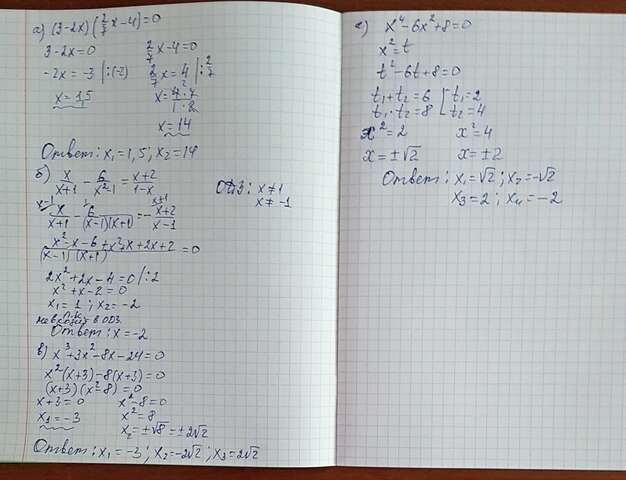 а) (3-2x)(2/7 x-4)=0
3-2x=0 2/7 x-4=0
-2x=-3 |:(-2) 2/7 x=4 |:2/7
x=1,5 x=4·7/1·2
x=14
Ответ: x₁=1,5; x₂=14
б) x/x+1 - 6/x²-1 = x+2/1-x ОДЗ: x≠1
x≠-1
x-1 x+1
x/x+1 - 6/(x-1)(x+1) = - x+2/x-1
x²-x-6+x²+x+2x+2/(x-1)(x+1) =0
2x²+2x-4=0 |:2
x²+x-2=0
x₁=1; x₂=-2
не входит в ОДЗ
Ответ: x=-2
в) x³+3x²-8x-24=0
x²(x+3)-8(x+3)=0
(x+3)(x²-8)=0
x+3=0 x²-8=0
x₁=-3 x²=8
x₂=±√8=±2√2
Ответ: x₁=-3; x₂=-2√2; x₃=2√2
x⁴-6x²+8=0
x²=t
t²-6t+8=0
t₁+t₂=6 [t₁=2
t₁·t₂=8 [t₂=4
x²=2 x²=4
x=±√2 x=±2
Ответ: x₁=√2; x₂=-√2
x₃=2; x₄=-2